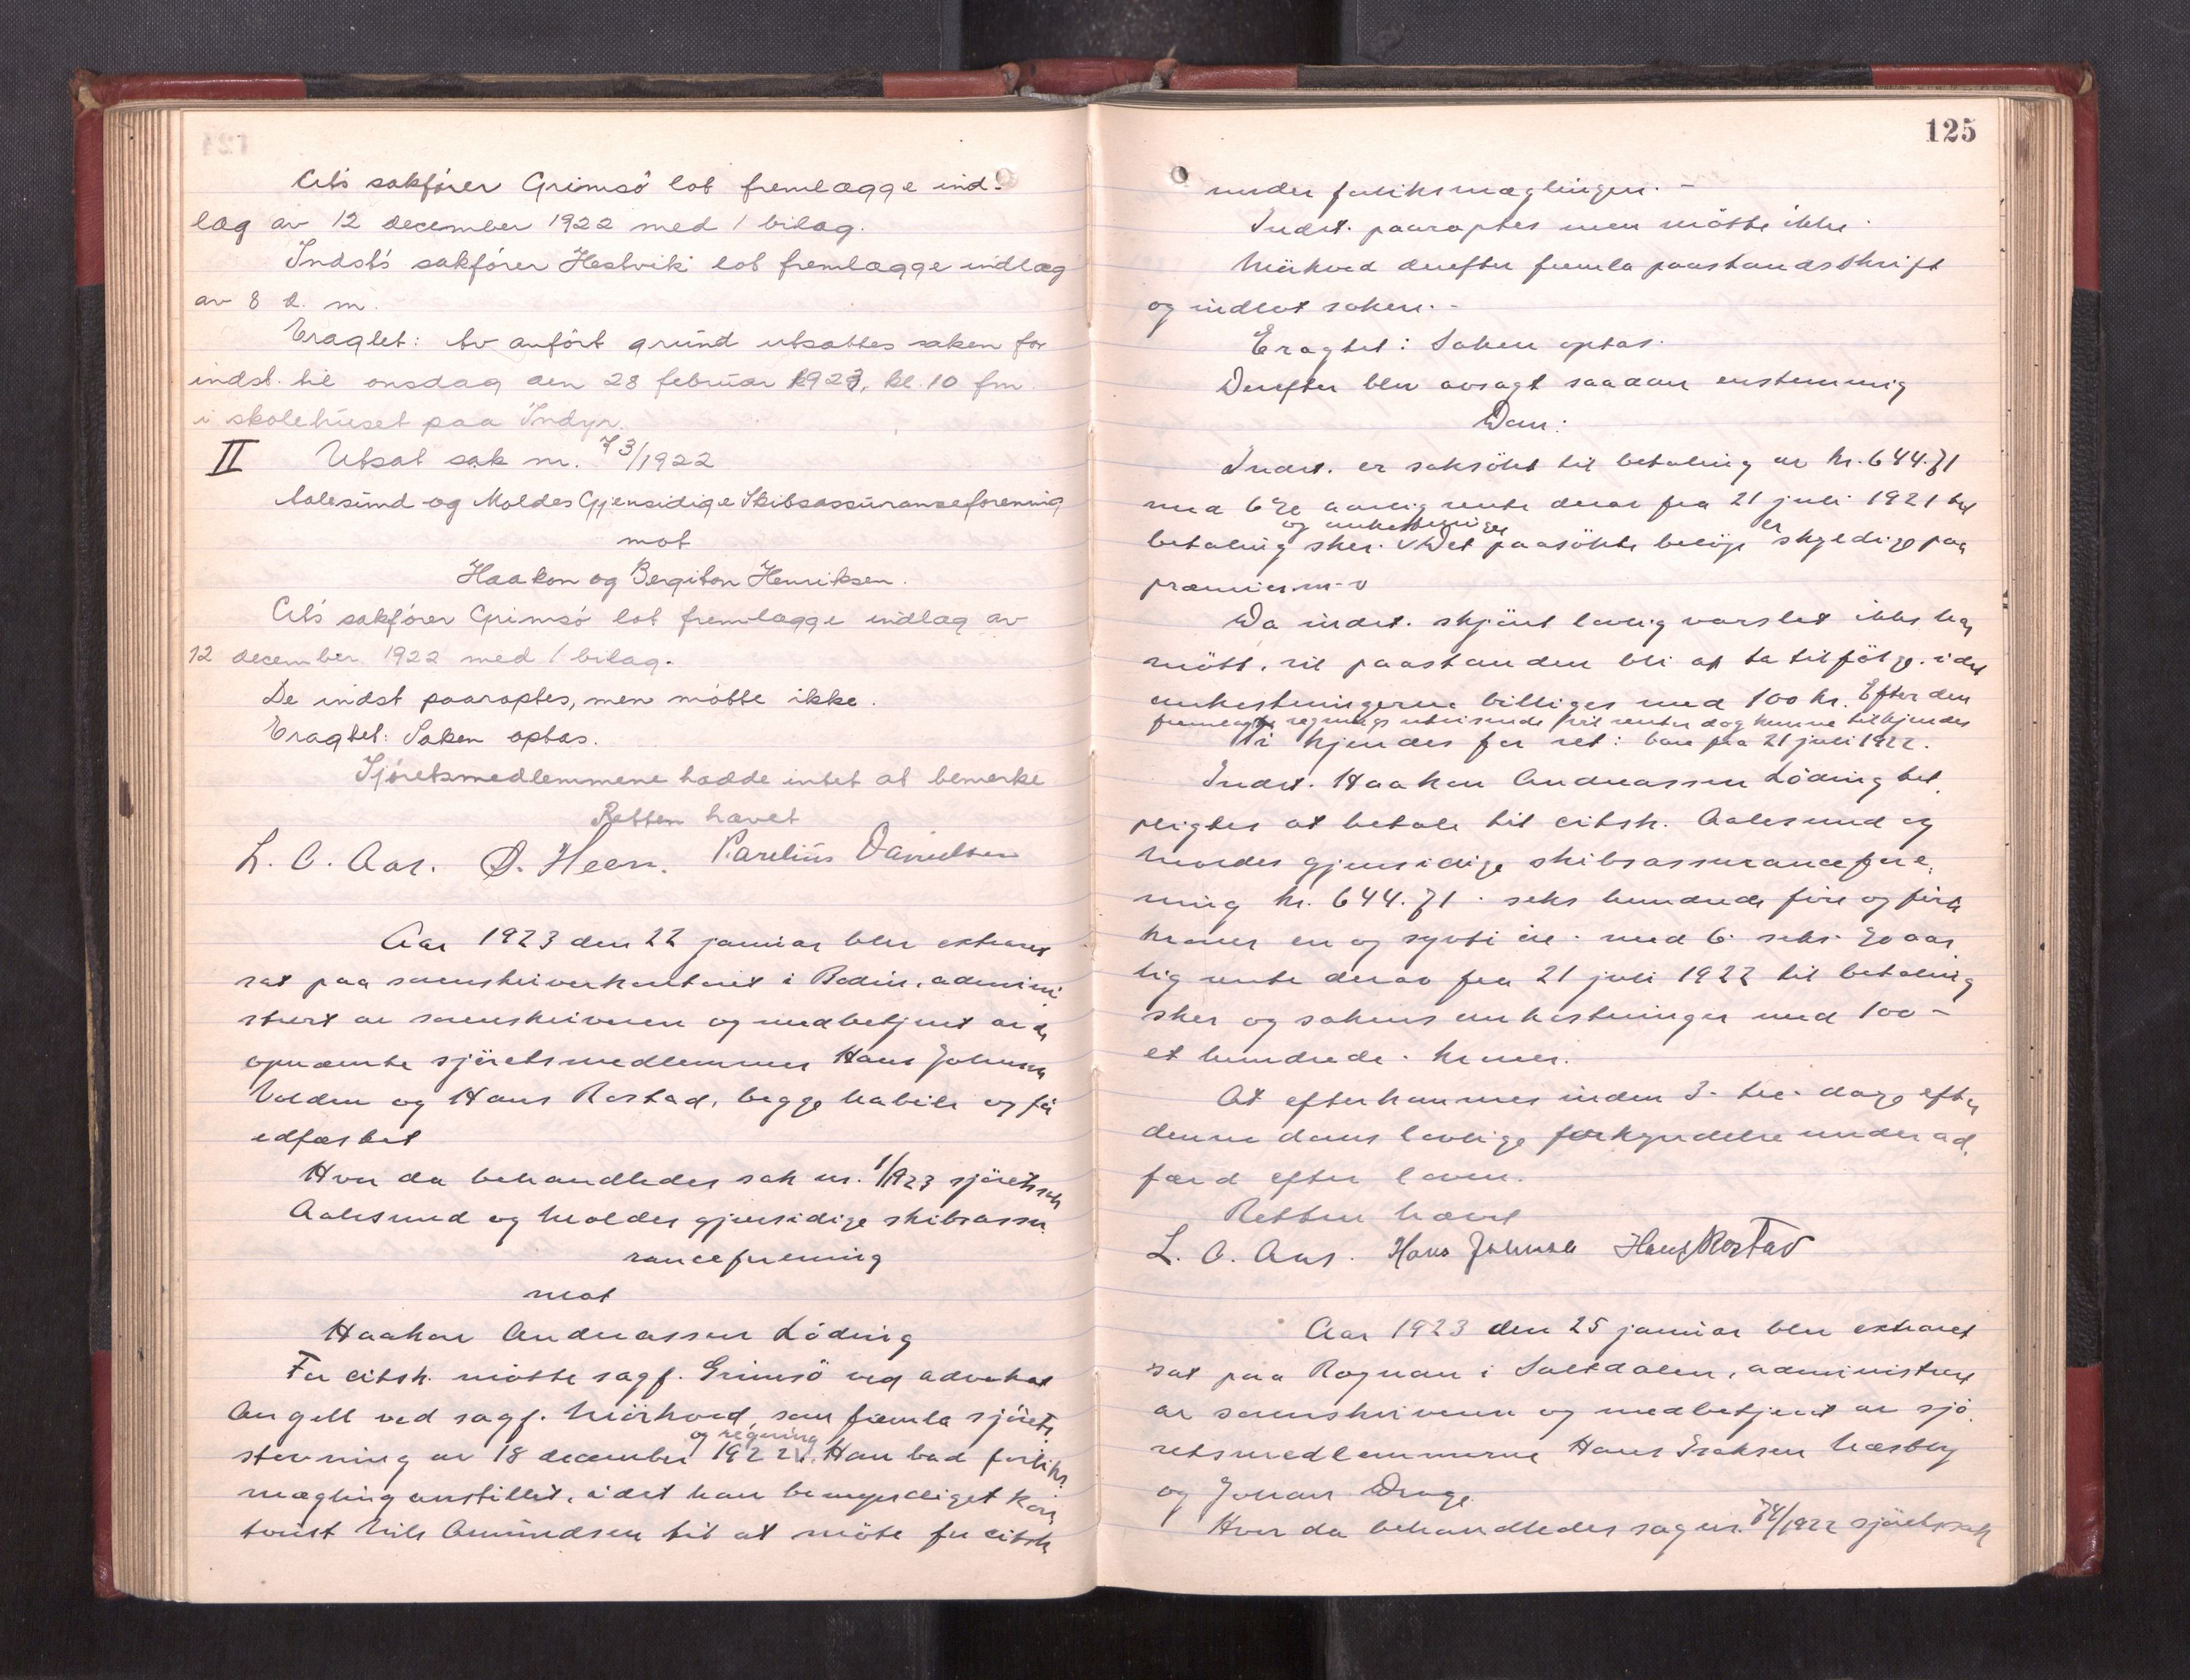 Cits sakfører Grimsö lot fremlægge ind-
læg av 12 december 1922 med 1 bilag.
Indsts sakfører Hestvik lot fremlægge indlæg
av 8 d. m.
Eragtet: Av anfört grund utsattes saken for
indst. til onsdag den 28 februar 1923, kl. 10 fm.
i skolehuset paa Indyr.
II Utsat sak nr. 73/1922
Aalesund og Moldes Gjensidige Skibsassuranseforening
mot
Haakon og Bergiton Henriksen.
Cits sakfører Grimsö lot fremlægge indlæg av
12 december 1922 med 1 bilag.
De indst paaroptes, men møtte ikke.
Eragtet: Saken optas.
Sjøretsmedlemmene hadde intet at bemerke
Retten hævet
L. C. Aas. O. Heen. Parelius Danielsen
Aar 1923 den 22 januar blev extraret
sat paa sorenskriverkontoret i Bodin, admini
strert av sorenskriveren og medbetjent av de
opnævnte sjöretsmedlemmer Hans Johnsen
Volden og Hans Rostad, begge habile og før
edfæstet
Hvor da behandledes sak nr. 1/1923 sjöretssak
Aalesund og Moldes gjensidige skibsassu
ranceforening
mot
Haakon Andreassen Löding
For citsk. mötte sagf. Grimsö ved advokat
Angell ved sagf. Mörkved, som fremla sjörets
stevning av 18 december 1922 og regning. Han bad forliks
mægling anstillet, idet han bemyndiget kon
torist Nils Amundsen til at möte for citsk
125
under forliksmæglingen. -
Indst. paaroptes men mötte ikke.
Mörkved derefter fremla paastandsskrift
og indlot saken. -
Eragtet: Saken optas.
Derefter blev avsagt saadan enstemmig
Dom:
Indst. er saksökt til betaling av kr. 644.71
med 6 % aarlig rente derav fra 21 juli 1921 til
betaling sker og omkostninger. Det paasökte belöp er skyldige paa
præmier m. v
Da indst. skjönt lovlig varslet ikke har
mött, vil paastanden bli at ta tilfölge, idet
omkostningerne billiges med 100 kr. Efter den
fremlagte regnings utvisende vil renter dog kunne tilkjendes
Ti kjendes for ret: bare fra 21 juli 1922.
Indst. Haakon Andreassen Löding til
pligtes at betale til citsk. Aalesund og
Moldes gjensidige skibsassurancefore
ning kr. 644.71 - seks hundrede fire og förti
kroner en og sytti öre - med 6 - seks - % aar
lig rente derav fra 21 juli 1922 til betaling
sker og sakens omkostninger med 100 -
et hundrede - kroner.
At efterkommes inden 3 - tre - dage efter
denne doms lovlige forkyndelse under ad
færd efter loven.
Retten hævet
L. C. Aas. Hans Johnsen Hans Rostad
Aar 1923 den 25 januar blev extraret
sat paa Rognan i Saltdalen, administrert
av sorenskriveren og medbetjent av sjö
retsmedlemmerne Hans Isaksen Næsby
og Johan Drage
Hvor da behandledes sag nr. 74/1922 sjöretssak